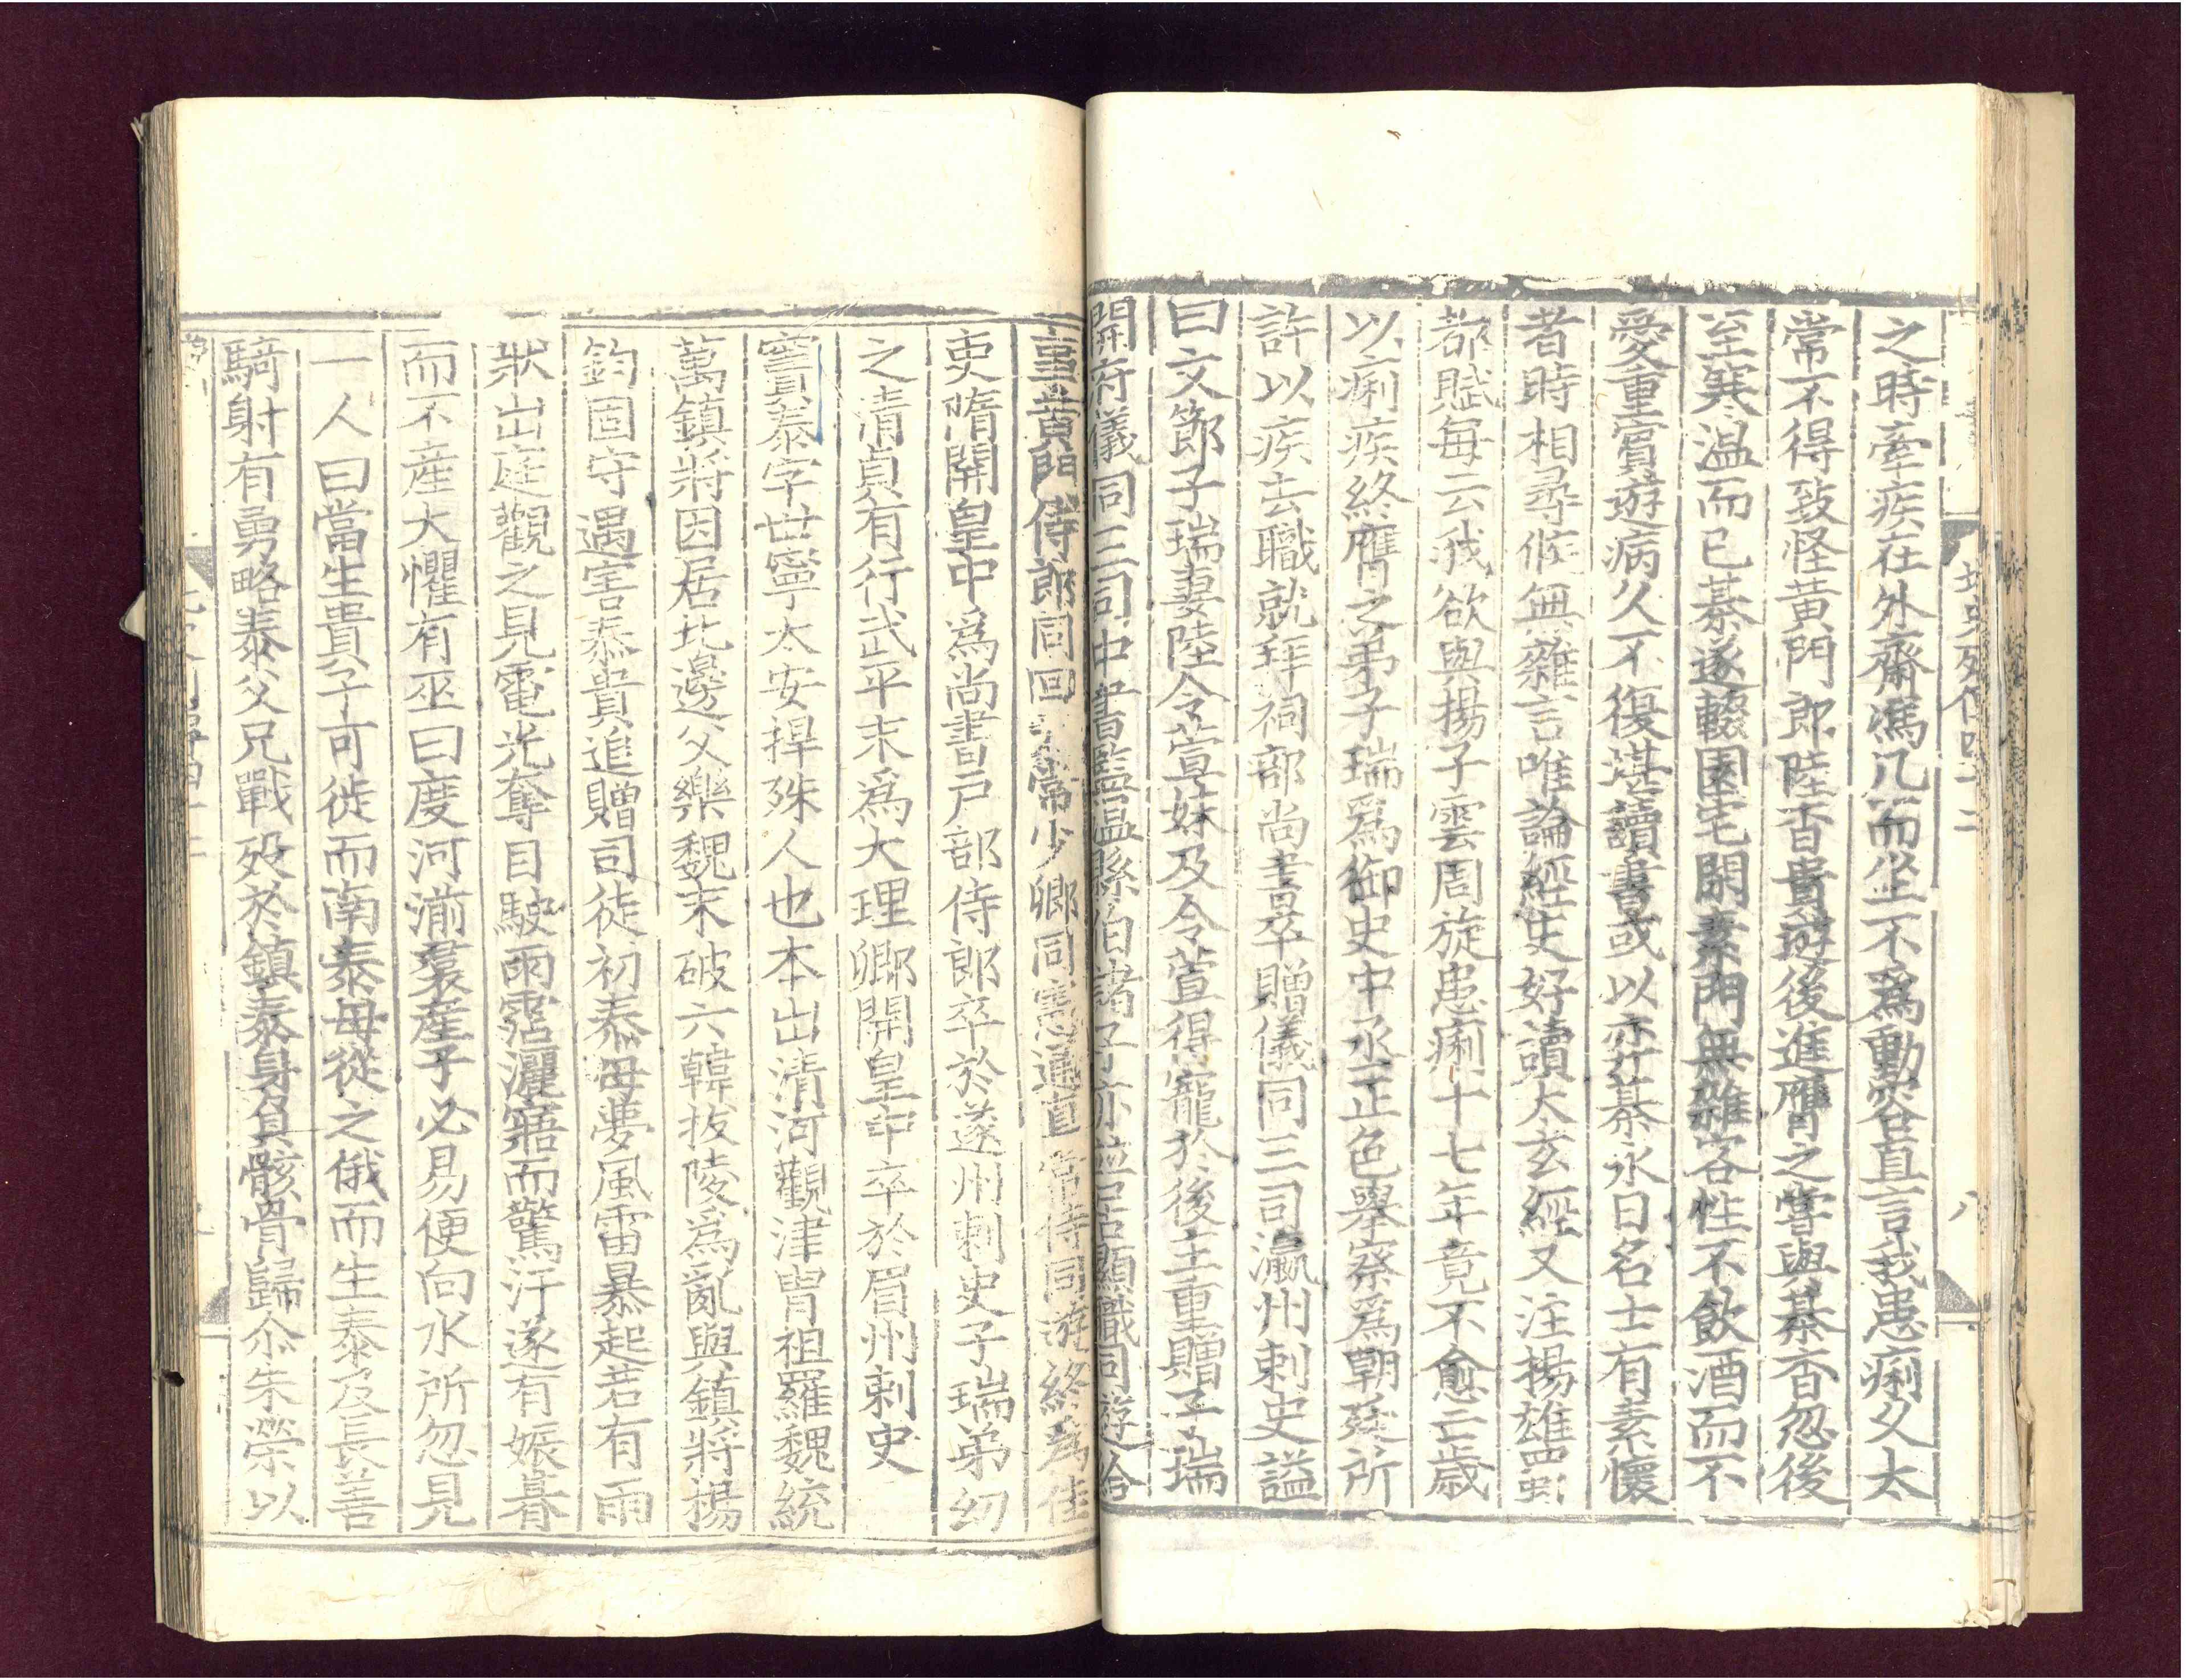 北史列傳四十二
八
之時牽疾在外齋馮几而坐不爲動容直言我患痢久太
常不得致怪黃門郎陸杳貴遊後進膺之嘗與棊杳忽後
至寒温而已棊遂輟園宅閑素門無雜客性不飲酒而不
愛重賓遊病久不復堪讀書或以弈棊永日名士有素懷
者時相尋候無雜言唯論經史好讀太玄經又注揚雄蜀
都賦每云我欲與揚子雲周旋患痢十七年竟不愈亡歲
以痢疾終膺之弟子瑞爲御史中丞正色舉察爲朝廷所
許以疾去職就拜祠部尚書卒贈儀同三司瀛州刺史謚
曰文節子瑞妻陸令萱妹及令萱得寵於後主重贈子瑞
開府儀同三司中書監温縣伯諸子亦並居顯職同遊給
事黃門侍郎同回太常少卿同憲通直常侍同遊終爲佳
吏隋開皇中爲尚書戸部侍郎卒於遂州刺史子瑞弟幼
之清貞有行武平末爲大理卿開皇中卒於眉州刺史
竇泰字世寧太安捍殊人也本出清河觀津胄祖羅魏統
萬鎮將因居北邊父樂魏末破六韓拔陵爲亂與鎮將楊
鈞固守遇害泰貴追贈司徒初泰母夢風雷暴起若有雨
狀出庭觀之見電光奪目駛雨霑灑寤而驚汗遂有娠朞
而不産大懼有巫曰度河湔羣産子必易便向水所忽見
一人曰當生貴子可徙而南泰母從之俄而生泰及長善
騎射有勇略泰父兄戰歿於鎮泰身負骸骨歸尒朱榮以